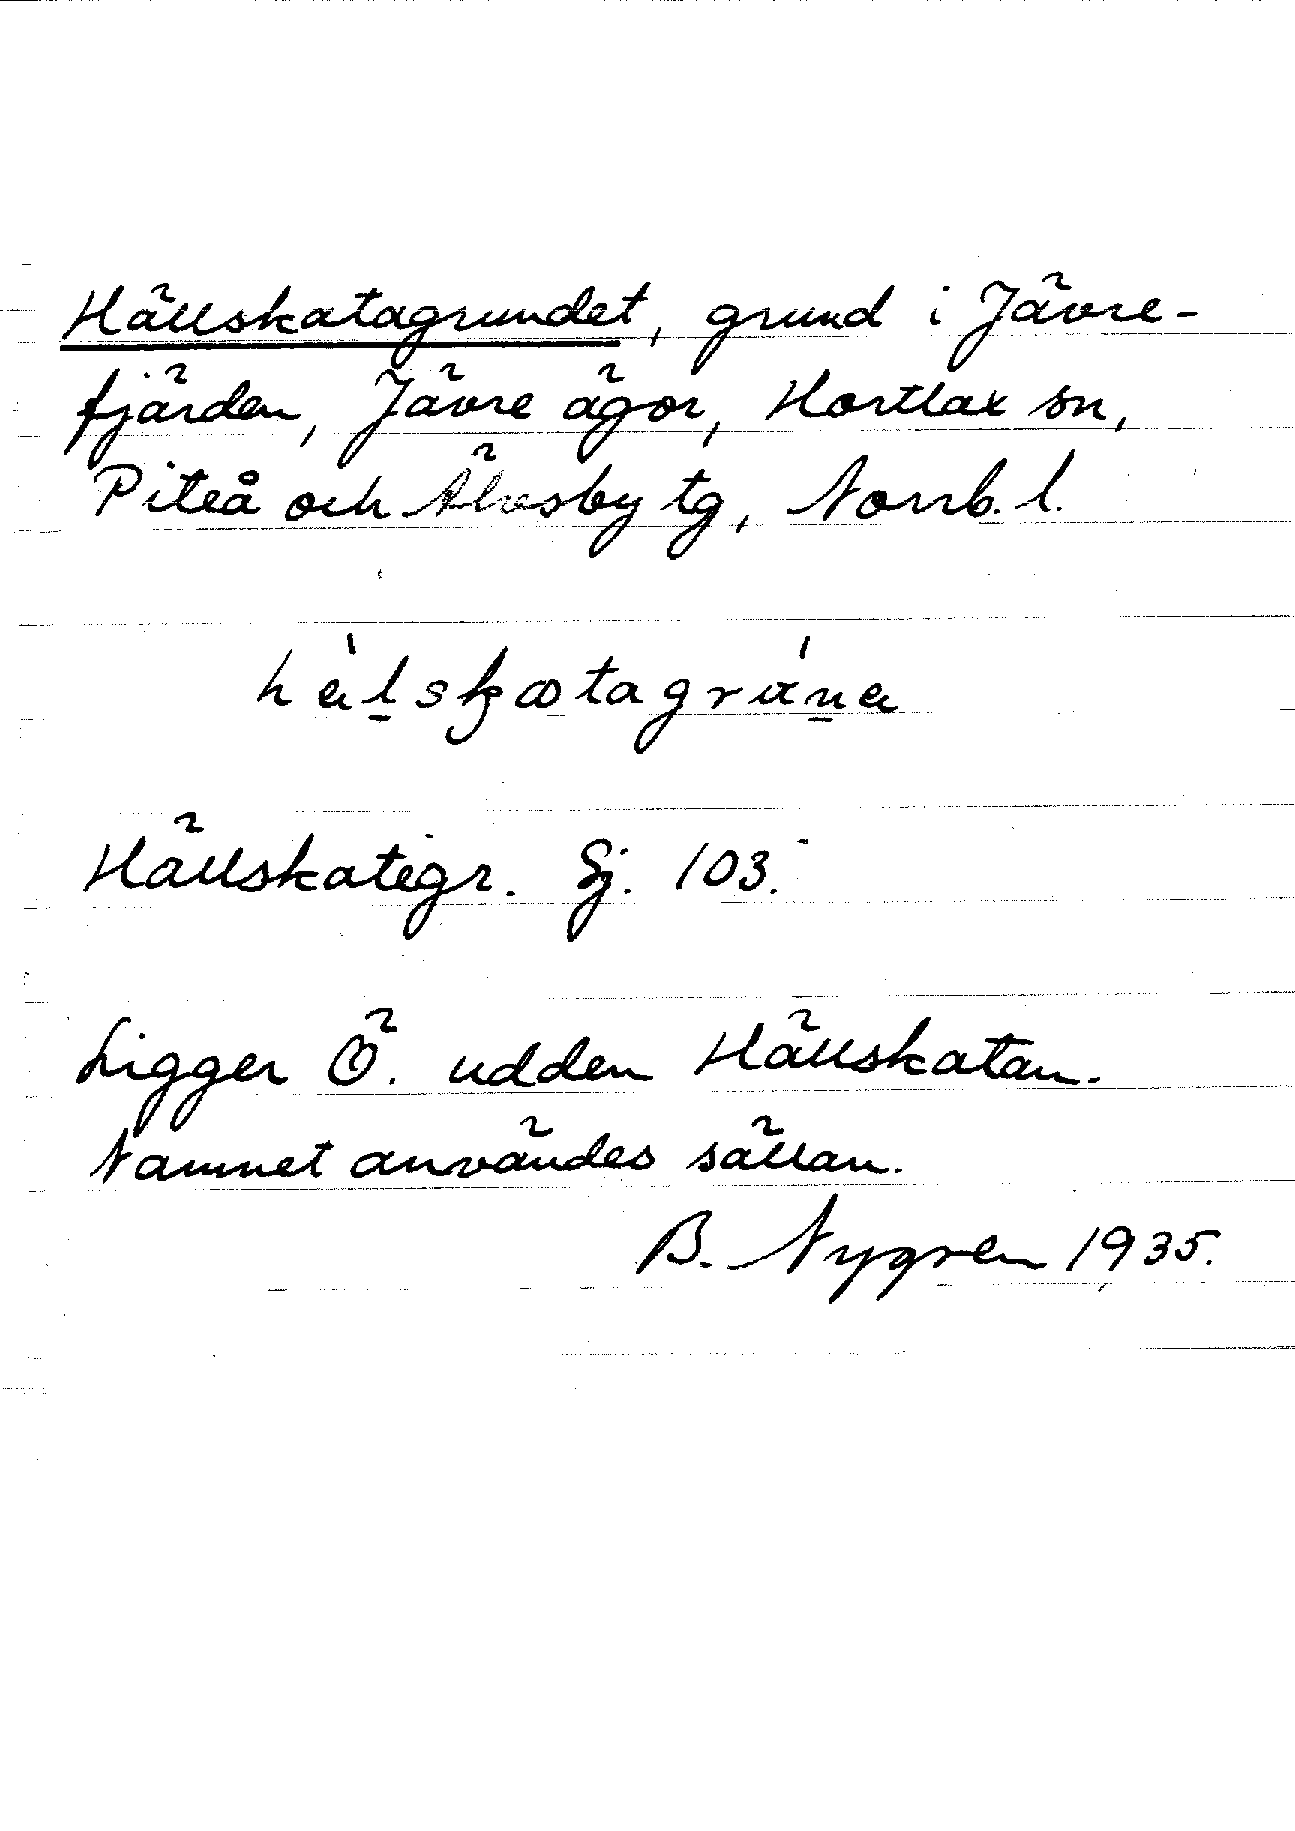 Hällskatagrundet, grund i Jävre-
fjärden, Jävre ägor, Hortlax sn,
Piteå och Älvsby tg, Norrb. l.
Hällskategr. Sj. 103.
Ligger Ö. udden Hällskatan.
Namnet användes sällan.
B. Nygren 1935.